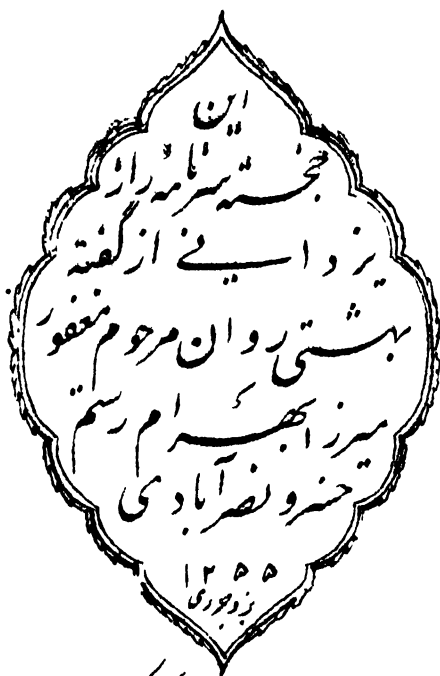 این
خجسته سیر نامهٔ راز
یزدانی از گفته
بهشتی روان مرحوم مغفور
میرزا بهرام رستم
خسرو نصرآبادی
۱۲۵۵
یزدجردی